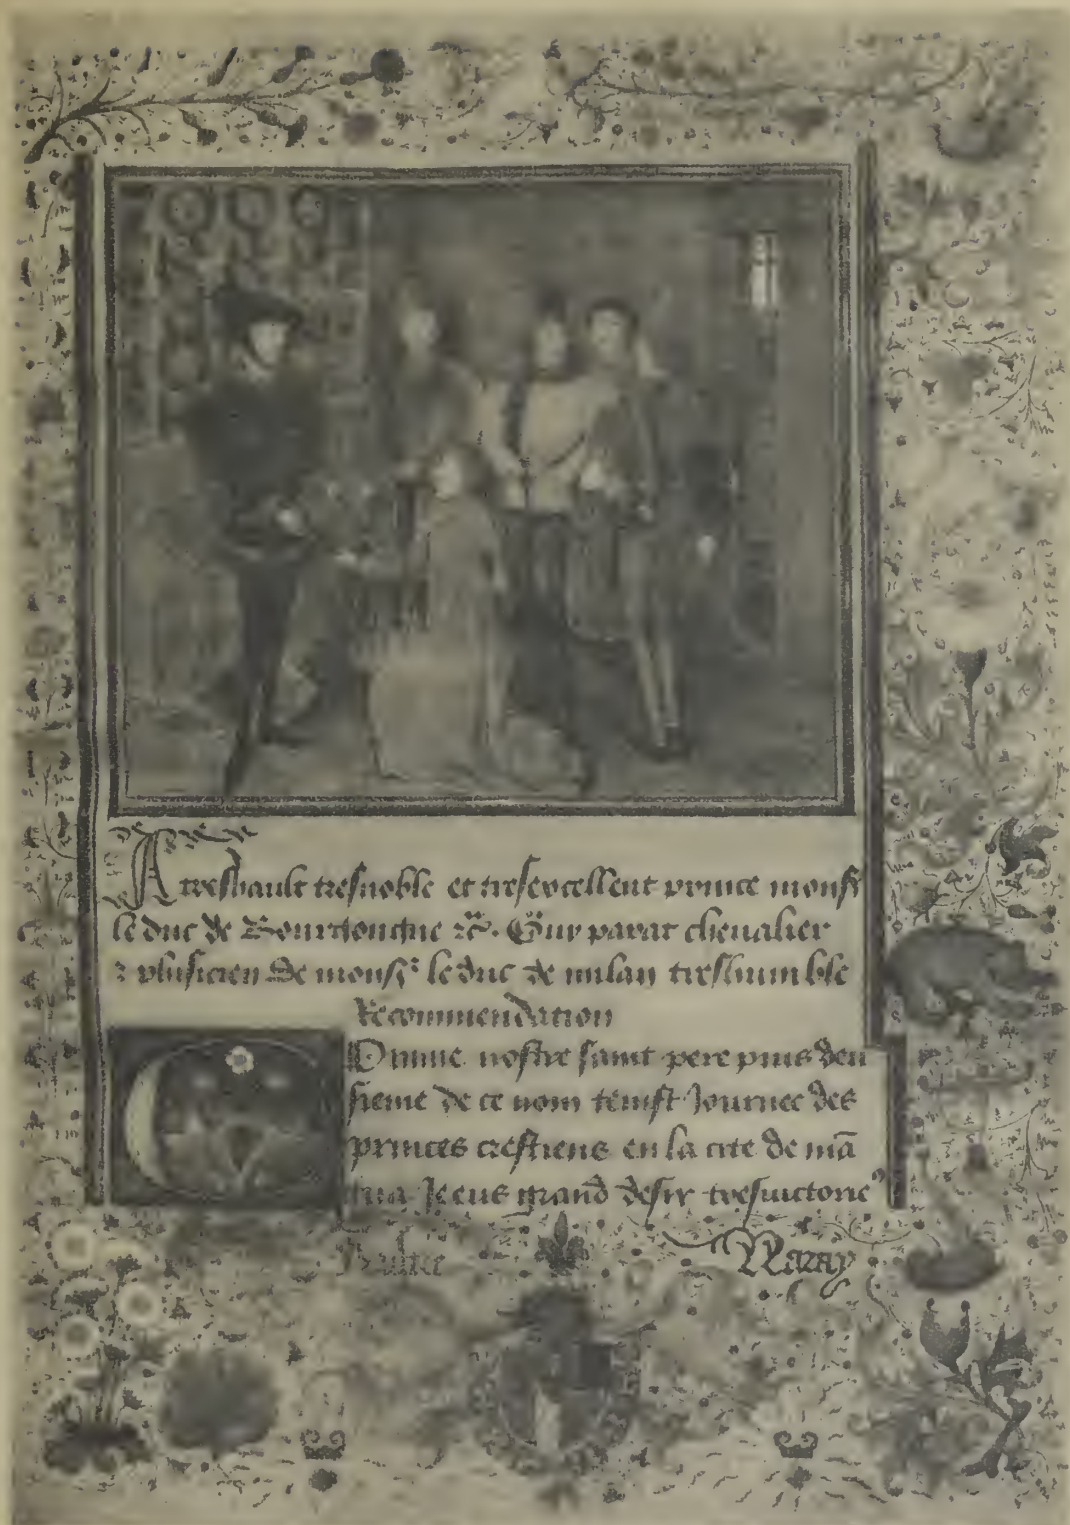 A treshault tresnoble et tresexcellent prince monsr
le duc de Bourgongne &c. Guy parat chevalier
& phisicien de monsr le duc de milan treshumble
Recommendation
Comme nostre saint pere pius deu
sieme de ce nom tenist Journee des
princes crestiens en la cite de mā
tua Je eus grand desir tresvictorie
Naray